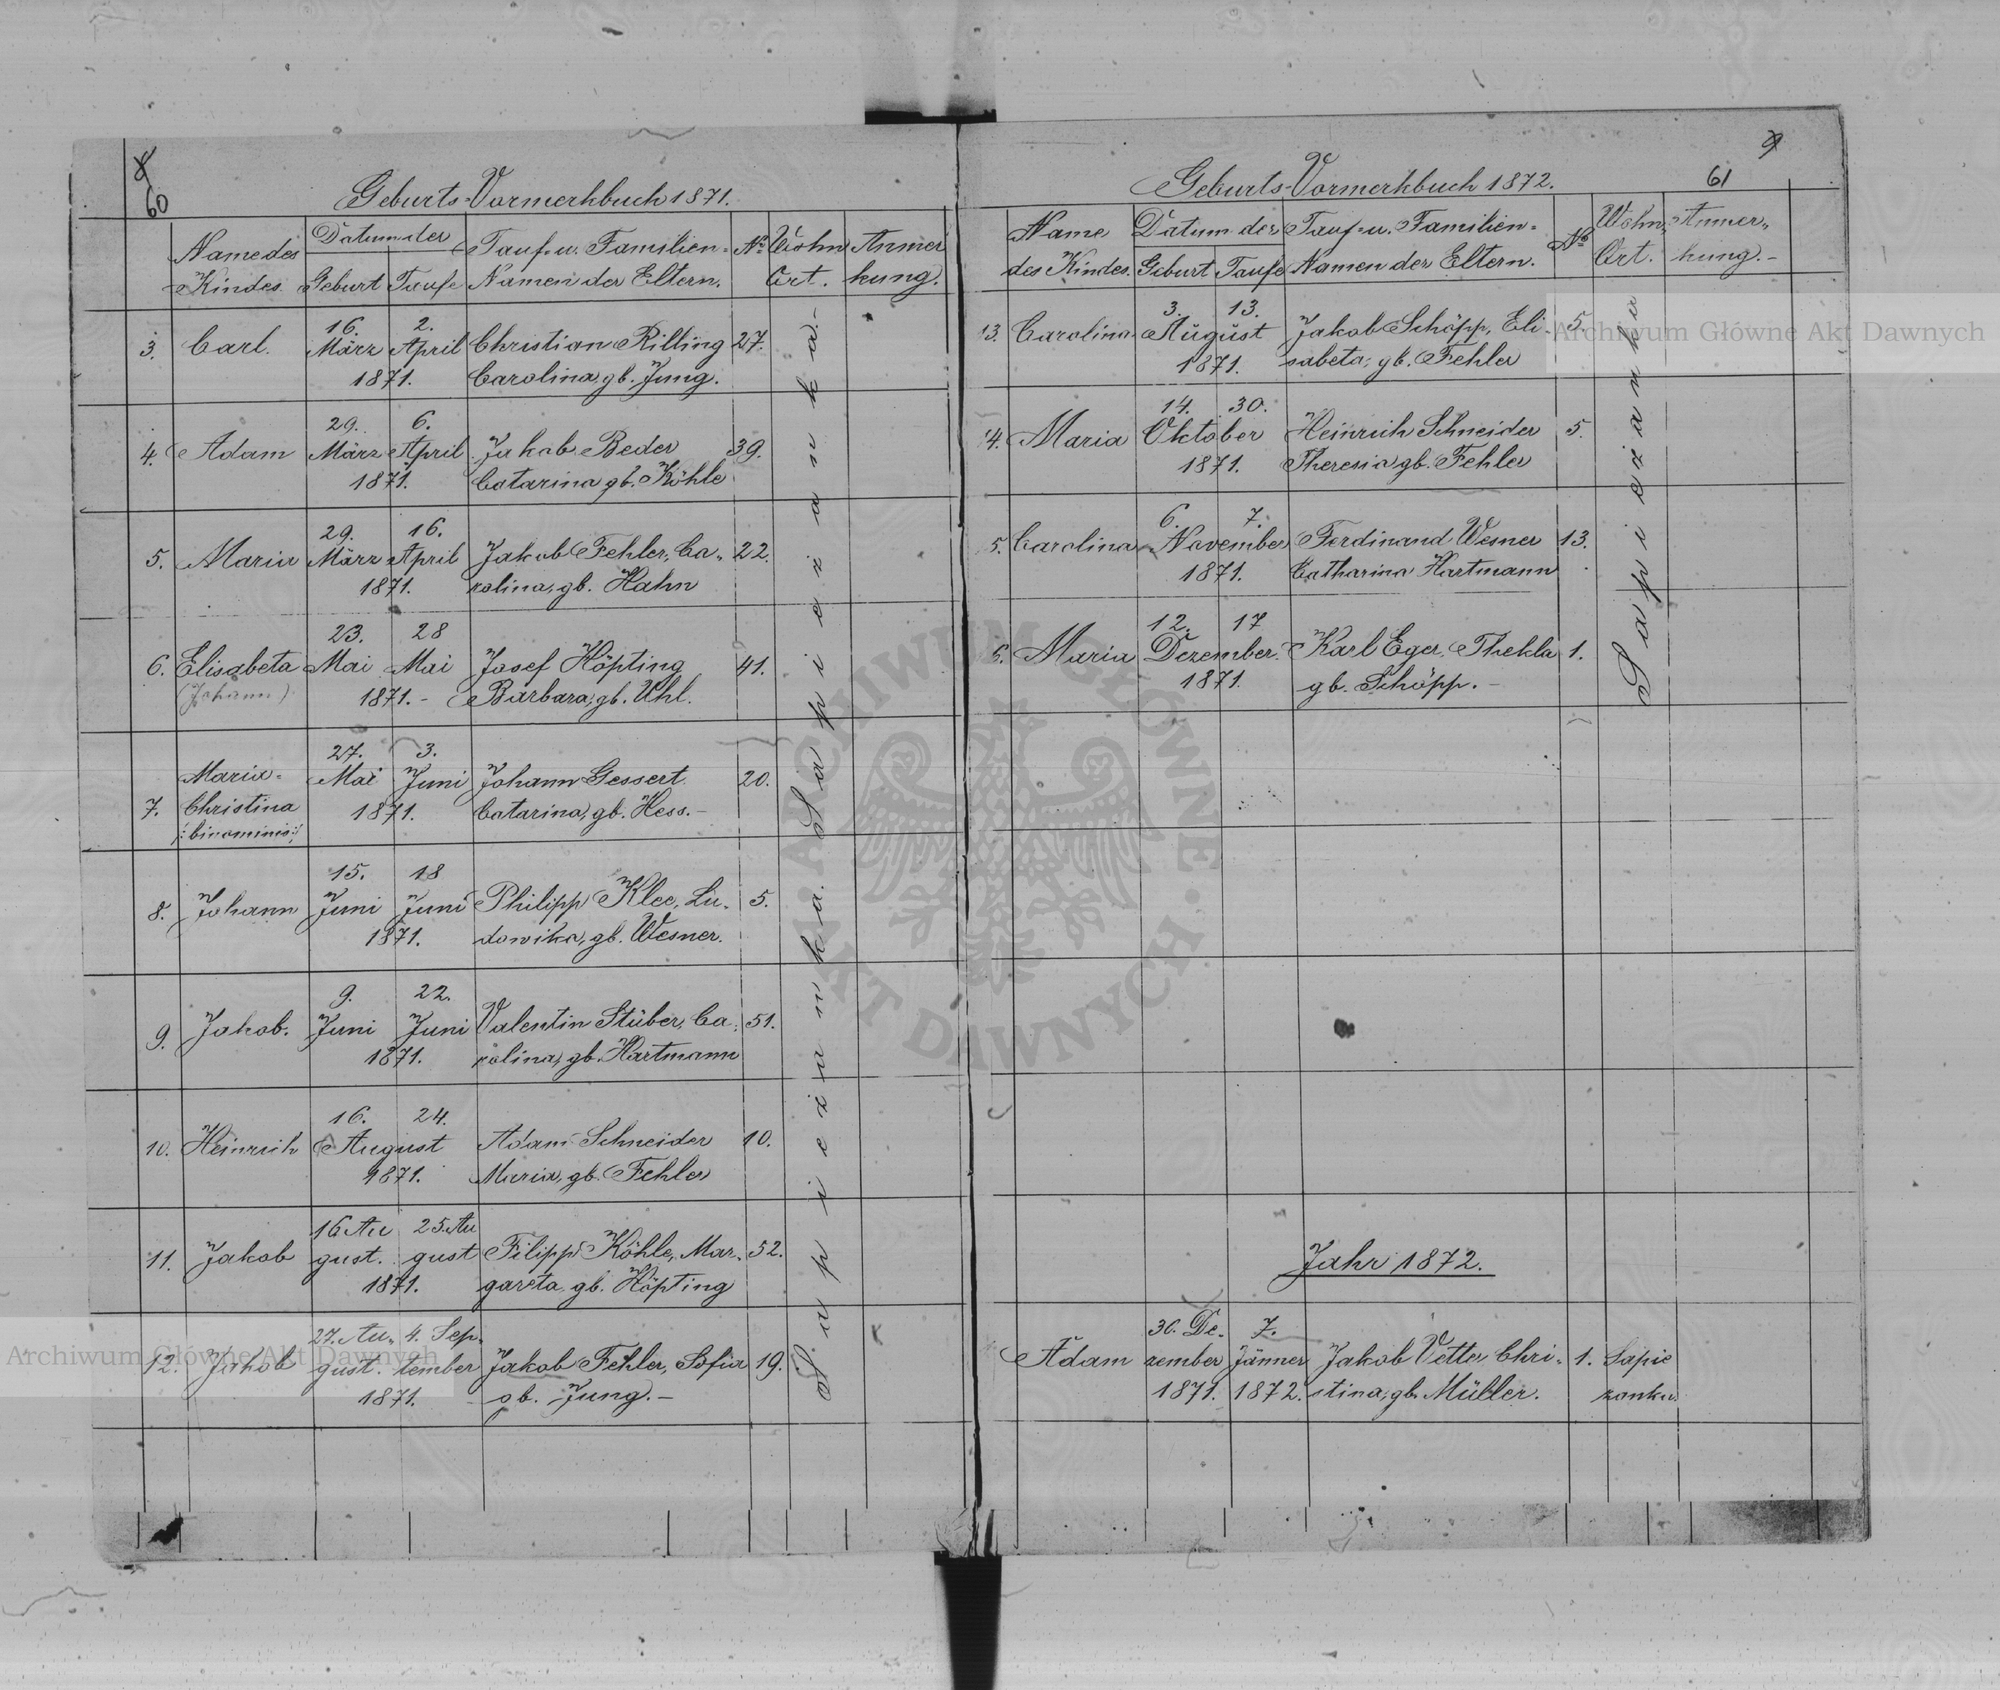 8
60
Geburts-Vormerkbuch 1871.
Name des
Kindes
Datum der
Geburt Taufe
Tauf- u. Familien-
Namen der Eltern.
No.
Wohn
Ort.
Anmer
kung.
3. Carl.
16. 2.
März April
1871.
Christian Rilling
Carolina, gb. Jung.
27.
4. Adam
29. 6.
März April
1871.
Jakob Beder
Catarina gb. Köhle
39.
5. Maria
29. 16.
März April
1871.
Jakob Fehler, Ca-
rolina, gb. Hahn
22.
6. Elisabeta
(Johann)
23. 28
Mai Mai
1871.-
Josef Höpting
Barbara, gb. Uhl.
41.
7. Maria-
Christina
/:binominis:/
27. 3.
Mai Juni
1871.
Johann Gessert
Catarina, gb. Hess.-
20.
8. Johann
15. 18
Juni Juni
1871.
Philipp Klee, Lu-
dowika, gb. Wesner.
5.
9. Jakob.
9. 22.
Juni Juni
1871.
Valentin Stüber, Ca-
rolina, gb. Hartmann
51.
10. Heinrich
16. 24.
August
1871.
Adam Schneider
Maria, gb. Fehler
10.
11. Jakob
16 Au 25. Au
gust. gust
1871.
Filipp Köhle, Mar-
gareta gb. Höpting
52.
12. Jakob
27. Au- 4. Sep-
gust. tember
1871.
Jakob Fehler, Sofia
gb. Jung.-
19.
Sapiezanka.
Sapiezanka.-
9
61
Geburts-Vormerkbuch 1872.
Name
des Kindes.
Datum der
Geburt Taufe
Tauf- u. Familien-
Namen der Eltern.
No
Wohn
Ort.
Anmer-
kung.-
13. Carolina
3. 13.
August
1871.
Jakob Schöpp, Eli-
sabeta, gb. Fehler
5.
14. Maria
14. 30.
Oktober
1871.
Heinrich Schneider
Theresia gb. Fehler
5.
5. Carolina
6. 7.
November
1871.
Ferdinand Wesner
Catharina Hartmann
13.
6. Maria
12. 17
Dezember.
1871.
Karl Eger, Thekla
gb. Schöpp.-
1.
Sapiezanka
Jahr 1872.
Adam
30. De- 7.
zember Jänner
1871. 1872.
Jakob Vetter, Chri-
stina, gb. Müller.
1.
Sapie
zanka.
Archiwum Główne Akt Dawnych
Archiwum Główne Akt Dawnych
ARCHIWUM GŁÓWNE AKT DAWNYCH